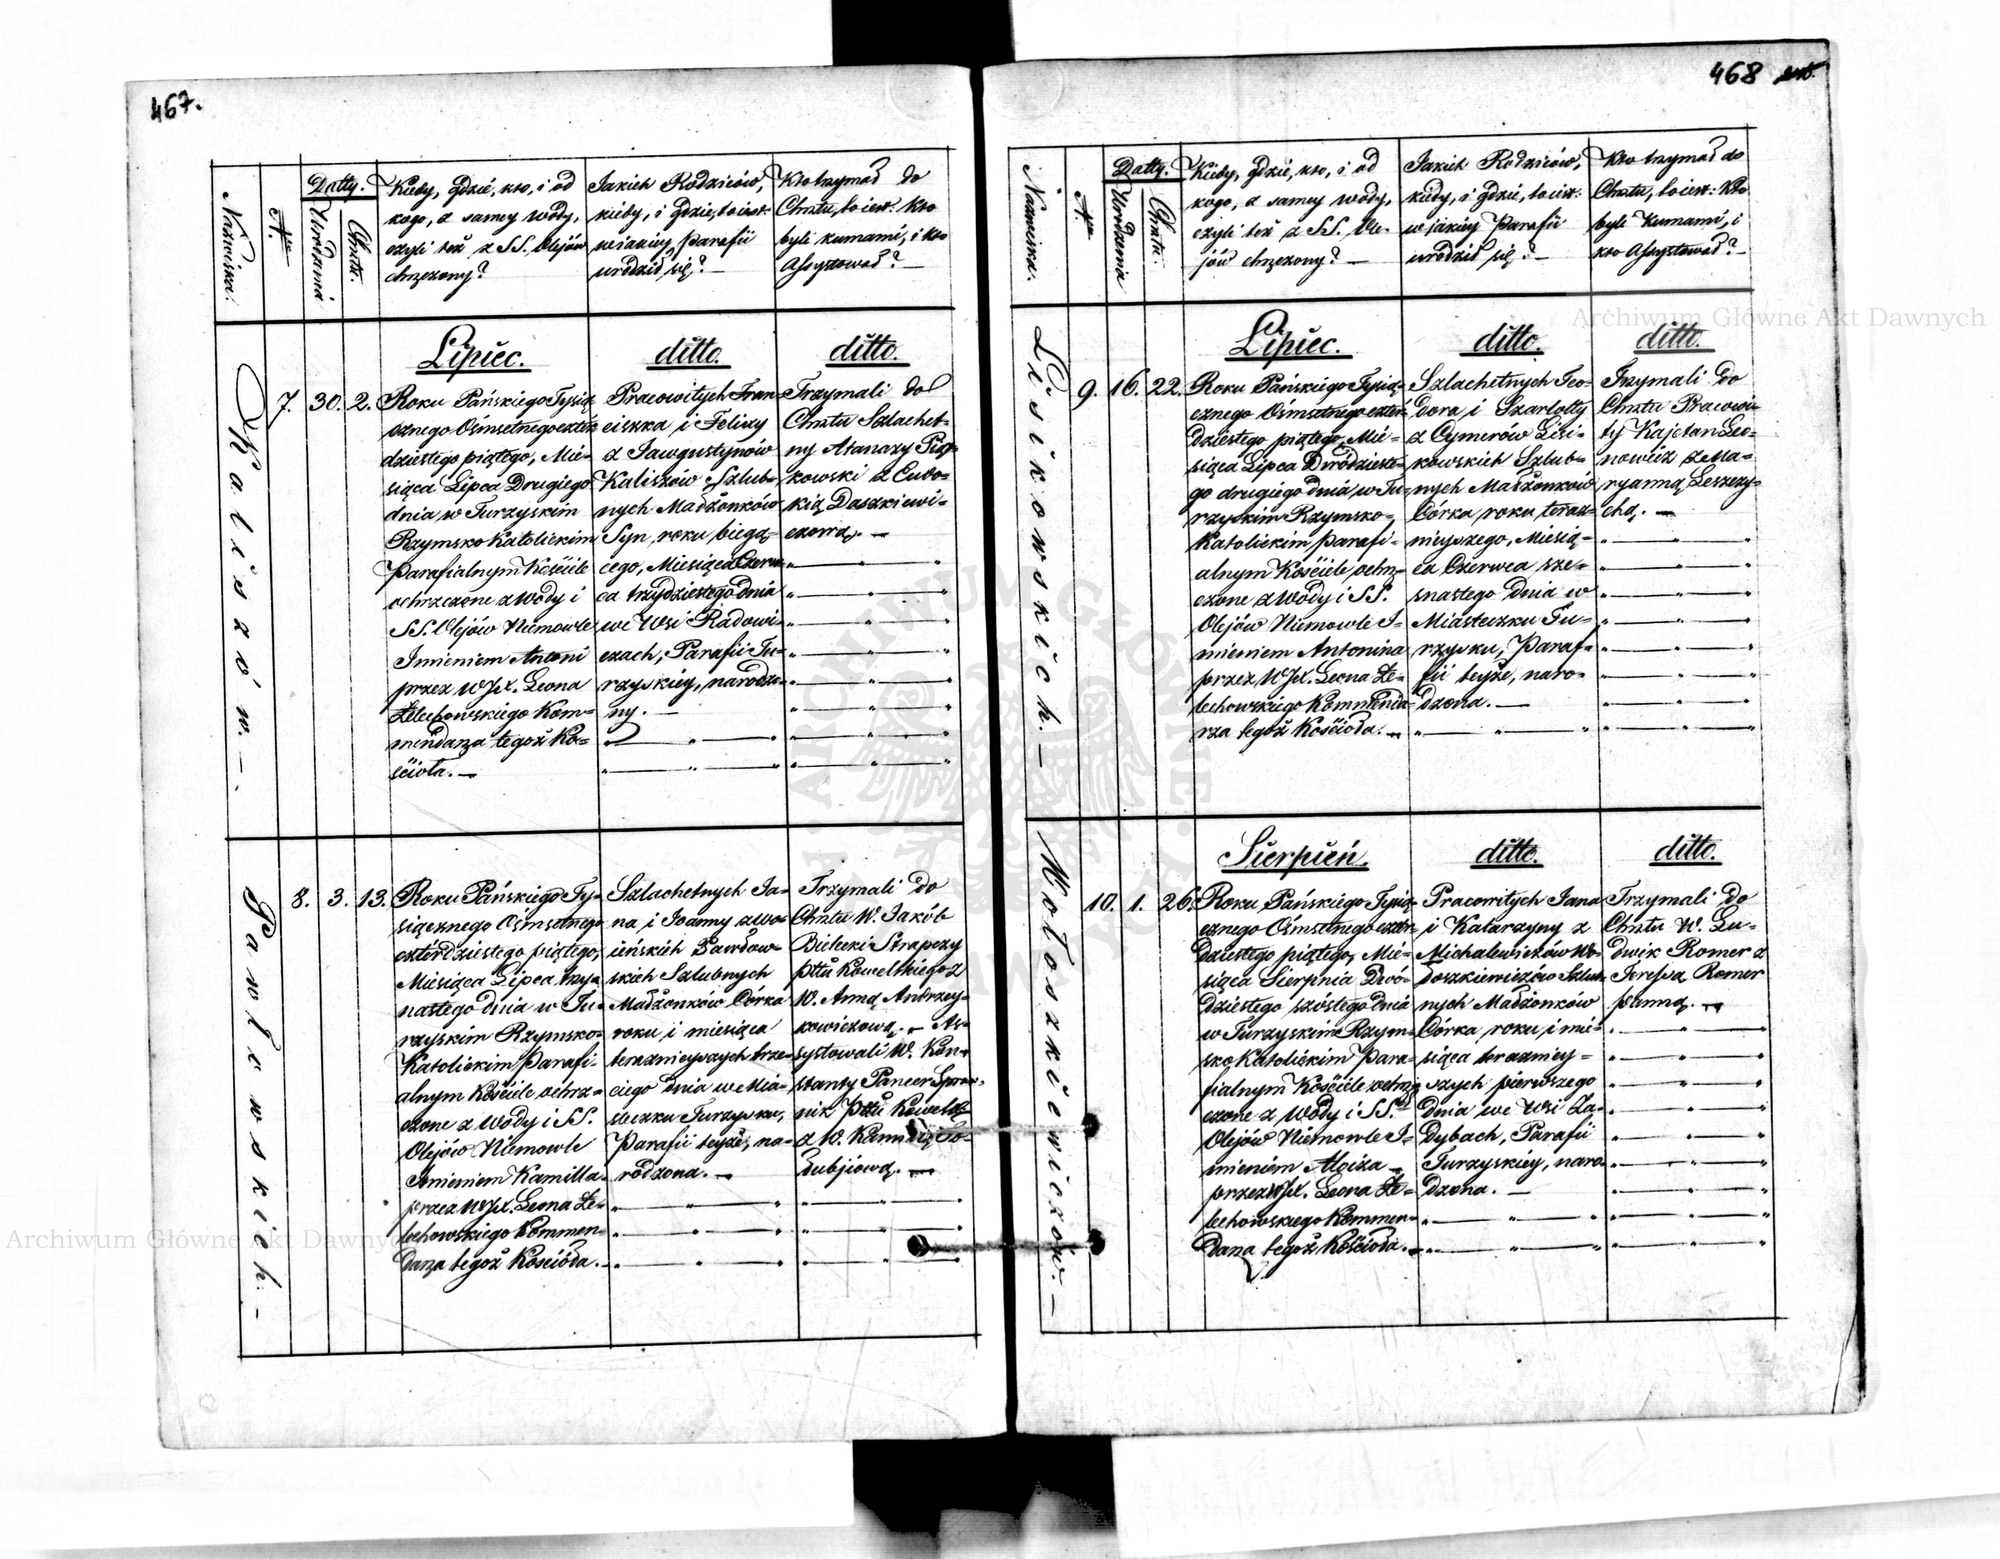 467.
Nazwiska.
N.
Datty.
Urodzenia
Chrztu.
Kiedy, gdzie, kto, i od
kogo, z samey wody,
czyli też z SS. Olejów
chrzczony?
Jakich Rodziców,
kiedy, i gdzie, to iest:
w iakiey Parafii
urodził się? —
Kto trzymał do
Chrztu, to iest: kto
byli kumami, i kto
Assystował? —
Kaliszów. —
7. 30. 2.
Lipiec.
Roku Pańskiego Tysią-
cznego Ośmsetnego czter-
dziestego piątego, Mie=
siąca Lipca Drugiego
dnia w Turzyskim
Rzymsko Katolickim
Parafialnym Kościele
ochrzczone z Wody i
SS. Olejów Niemowle
Imieniem Antoni
przez WJX. Leona
Żelechowskiego Kom=
mendarza tegoż Ko=
ścioła. —
ditto.
Pracowitych Fran
ciszka i Felixy
z Jawgustynów
Kaliszów Szlub=
nych Małżonków
Syn, roku biegą=
cego, Miesiąca Czerw=
ca trzydziestego dnia
we Wsi Radowi=
czach, Parafii Tu=
rzyskiey, narodzo=
ny. —
ditto.
Trzymali do
Chrztu Szlachet=
ny Atanazy Piąt=
kowski z Eudo=
kią Daszkiewi=
czową. —
Pawłowskich. —
8. 3. 13.
Roku Pańskiego Ty=
siącznego Ośmsetnego
czterdziestego piątego,
Miesiąca Lipca trzy=
nastego dnia w Tu=
rzyskim Rzymsko=
Katolickim Parafi=
alnym Kościele ochrz=
czone z Wody i SS.
Olejów Niemowle
Imieniem Kamilla
przez WJX. Leona Że=
lechowskiego Kommen=
darza tegoż Kościoła. —
Szlachetnych Ja=
na i Joanny z Wo=
cieńskich Pawłow=
skich Szlubnych
Małżonków Córka
roku i miesiąca
teraznieyszych trze=
ciego dnia w Mia=
steczku Turzysku,
Parafii teyże, na=
rodzona. —
Trzymali do
Chrztu W. Jakób
Bielecki Strapczy
Pttu Kowelskiego z
W. Anną Andrzey=
kowiczową. — As=
systowali W. Kon=
stanty Pancer Spraw=
nik Pttu Kowelsk
z W.
468
Nazwiska.
N.
Datty.
Urodzenia
Chrztu.
Kiedy, gdzie, kto, i od
kogo, z samey wody,
czyli też z SS. Ole=
jów chrzczony? —
Jakich Rodziców,
kiedy, i gdzie, to iest:
w jakiey Parafii
urodził się? —
Kto trzymał do
Chrztu, to iest: Kto
byli Kumami, i
kto Assystował? —
Lisikowskich. —
9. 16. 22.
Lipiec.
Roku Pańskiego Tysią=
cznego Ośmsetnego czter=
dziestego piątego, Mie=
siąca Lipca Dwódzieste=
go drugiego dnia, w Tu=
rzyskim Rzymsko=
Katolickim Parafi=
alnym Kościele ochrz=
czone z Wody i SS.
Olejów Niemowle I=
mieniem Antonina
przez WJX. Leona Że=
lechowskiego Kommenda
rza tegoż Kościoła. —
ditto.
Szlachetnych Teo=
dora i Szarlotty
z Cymerów Lisi=
kowskich Szlub=
nych Małżonków
Córka roku teraz=
nieyszego, Miesią=
ca Czerwca sze=
snastego dnia w
Miasteczku Tu=
rzysku, Paraf=
fii teyże, naro=
dzona. —
ditto.
Trzymali do
Chrztu Pracowi=
ty Kajetan Leo=
nowicz z Ma=
ryanną Leszczy=
chą. —
Wołoszkiewiczów. —
10. 1. 26.
Sierpień.
Roku Pańskiego Tysią=
cznego Ośmsetnego czter=
dziestego piątego, Mie=
siąca Sierpnia Dwó=
dziestego szóstego dnia
w Turzyskim Rzym=
sko Katolickim Para=
fialnym Kościele ochrz
czone z Wody i SS.
Olejów Niemowle I=
mieniem Aloiza
przez WJX. Leona Że=
lechowskiego Kommen=
darza tegoż Kościoła. —
ditto.
Pracowitych Jana
i Katarzyny z
Michalewiczów Wo=
łoszkiewiczów Szlub=
nych Małżonków
Córka, roku i mie=
siąca terazniey=
szych pierwszego
dnia we Wsi Za=
dybach, Parafii
Turzyskiey, naro=
dzona. —
ditto.
Trzymali do
Chrztu W. Lu=
dwik Romer z
Jozefą Romer
panną. —
Archiwum Główne Akt Dawnych
Archiwum Główne Akt Dawnych